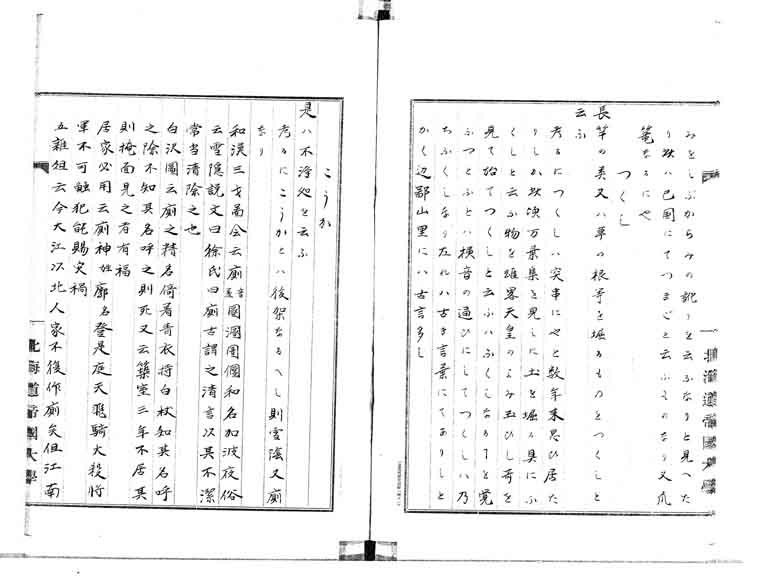 みとしぶからみの訛りを云ふなりと見へた
り故ハ巴園にてつまごと云ふそのなり又爪
篭なるにや
つくし
長竿の美又ハ草の根等を堀るものをつくしと
云ふ
考るにつくしハ突串にやと数年来思ひ居た
りしか故万葉集を見しに土を堀る具にふ
くしと云ふ物を雄畧天皇のよみ玉ひし哥を
見て始てつくしと云ふハふくしなる了と覚
ふつとふとハ横音の通ひにしてつくしハ乃
ちふくしなり左れハ古き言葉にてありしと
かく辺鄙山里にハ古言多し
北海道帝國大學
こうか
是ハ不浄処を云ふ
考るにこうかとハ後架なるへし則雪陰又廁
なり
和漢三才啚会云廁 音 圊溷圂偃和名加波夜俗
云雪隠説文曰徐氏曰廁古謂之清言以其不潔
常当清除之也
白沢圖云廁之精名倚着青衣持白杖知其名呼
之除不知其名呼之則死又云築室三年不居其
則掩面見之者有福
居家必用云廁神姓廓名登是庭天飛騎大殺将
軍不可触犯能賜灾福
五雜俎云今大江以北人家不後作廁矣但江南
北海道帝國大學